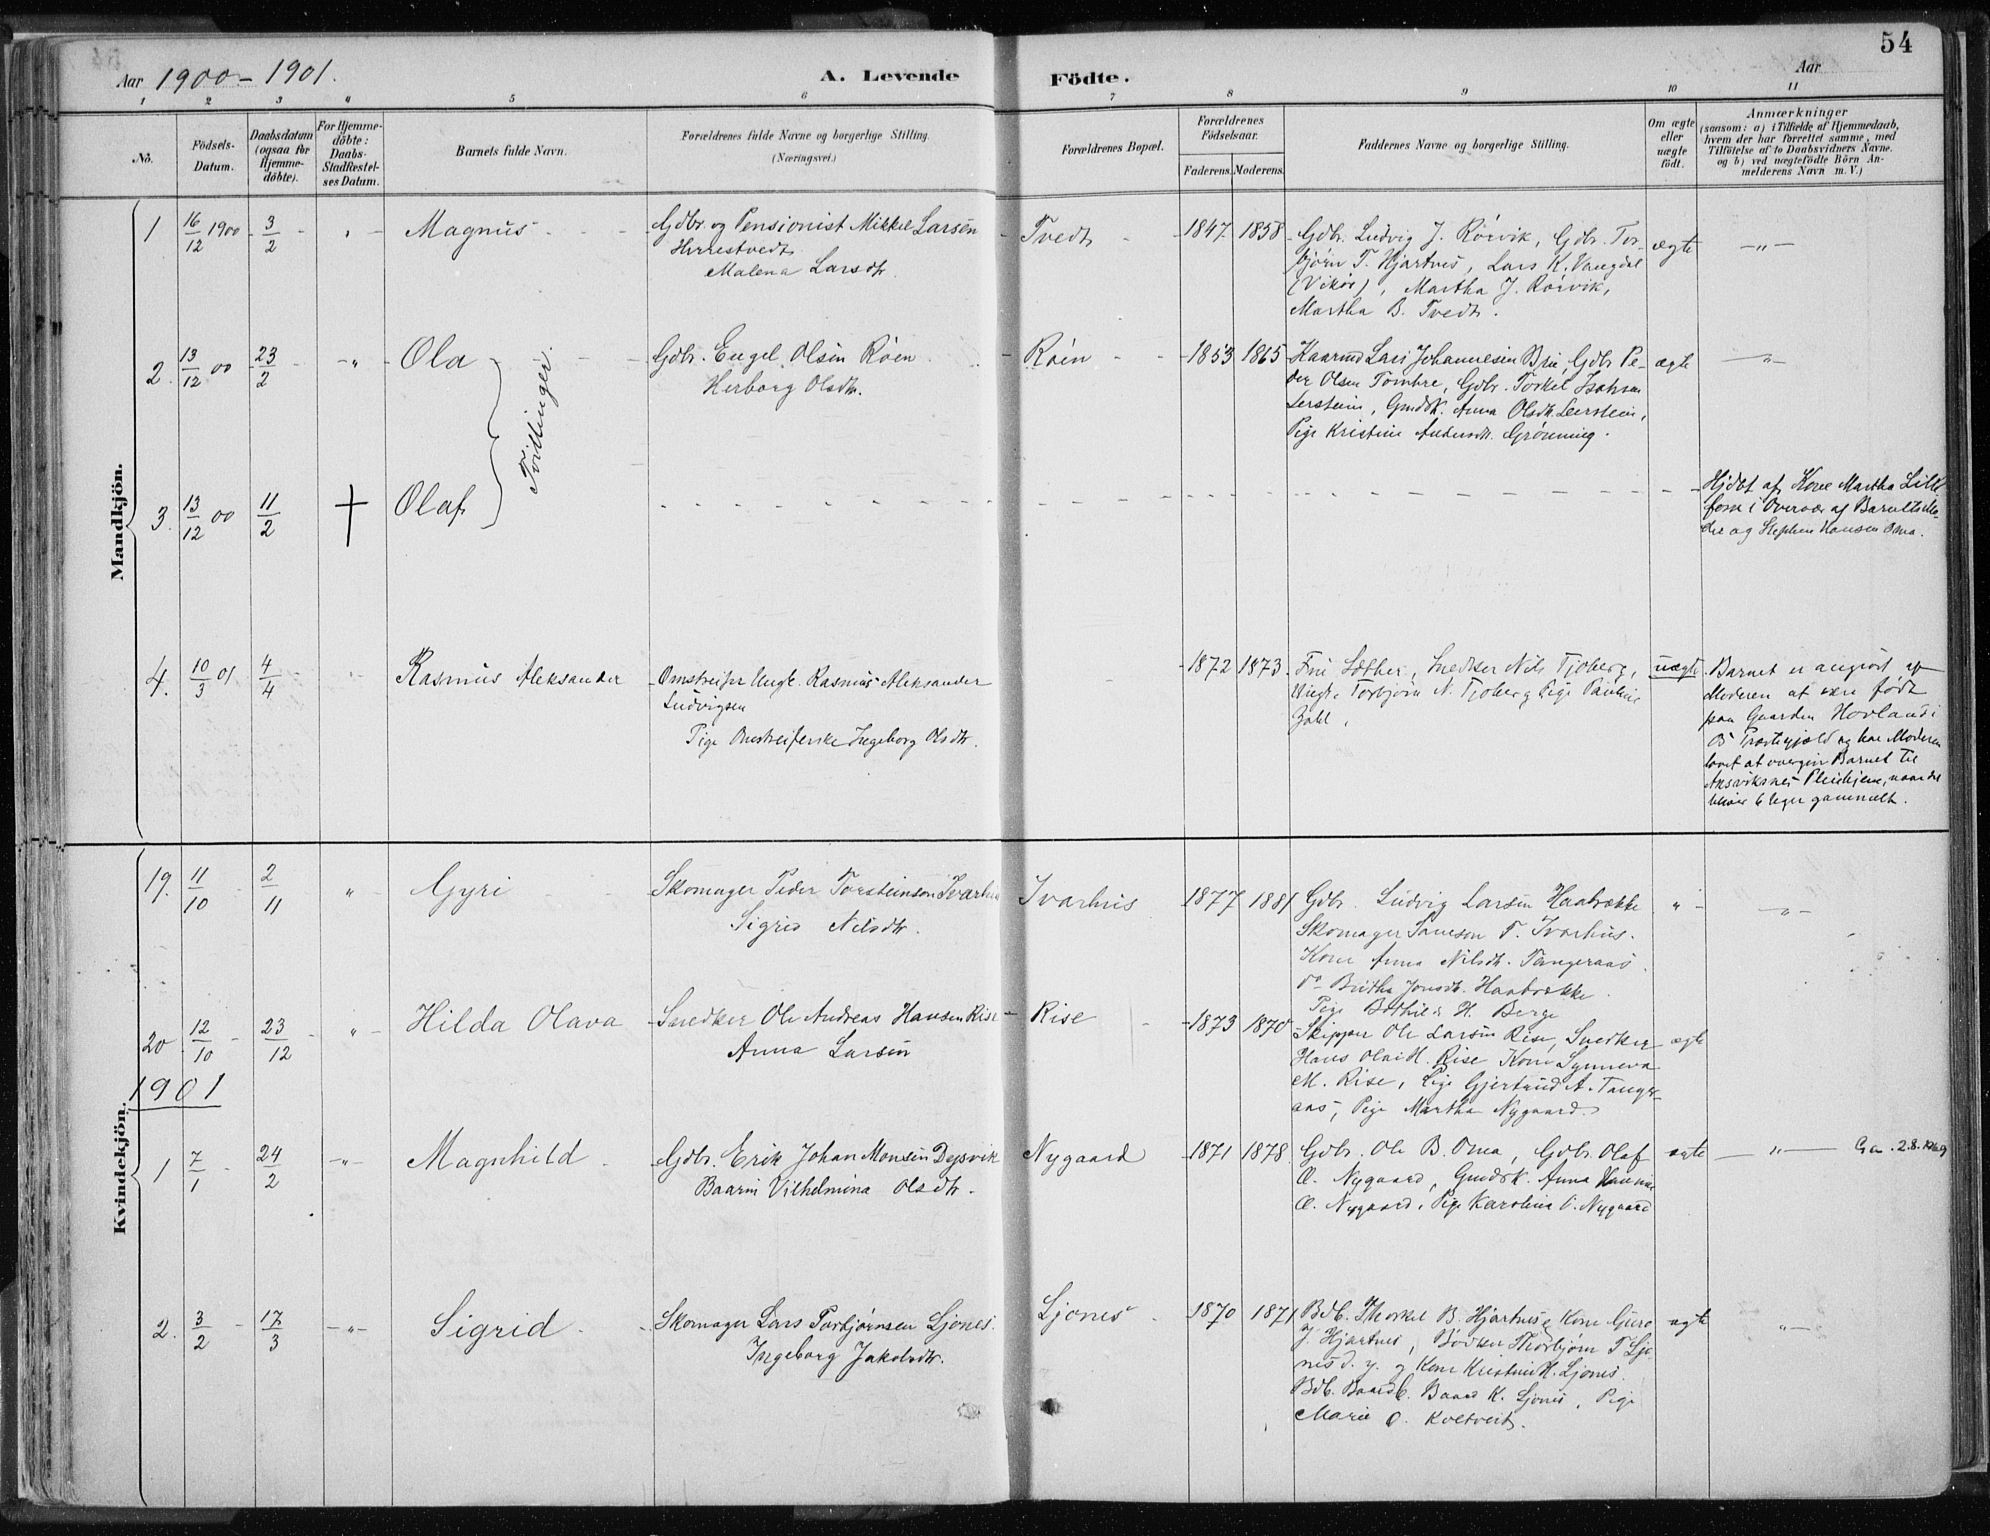 54
Aar 1900-1901.
A. Levende Födte.
Aar
1 2 3 4 5 6 7 8 9 10 11
No.
Födsels-
Datum.
Daabsdatum
(ogsaa for
Hjemme-
döbte).
For Hjemme-
döbte:
Daabs-
Stadfæstel-
ses Datum.
Barnets fulde Navn.
Forældrenes fulde Navne og borgerlige Stilling.
(Næringsvei.)
Forældrenes Bopæl.
Forældrenes
Födselsaar.
Faderens. Moderens.
Faddernes Navne og borgerlige Stilling.
Om ægte
eller
uægte
født.
Anmærkninger
(saasom: a) i Tilfælde af Hjemmedaab,
hvem der har forrettet samme, med
Tilföielse af to Daabsvidners Navne,
og b) ved uægtefödte Börn An-
melderens Navn m. V.)
Mandkjön.
1 16/12 1900 3/2 " Magnus
Gdbr. og Pensionist Mikkel Larsen
Herrestvedt
Malena Larsdtr.
Tvedt
1847 1858
Gdbr. Ludvig J. Rörvik, Gdbr. Tor-
bjørn T. Hjartnes, Lars K. Vangdal
(Vikør), Martha J. Rörvik,
Martha B. Tvedt.
ægte
"
2. 13/12 00 23/2 " Ola
Tvillinger.
Gdbr. Engel Olsen Röen
Herborg Olsdtr.
Röen
1853 1865
Lars Johannesen Brie, Gdbr. Pe-
der Olsen Tombre, Gdbr. Torkel
Lerstein, Gmdsk. Anna Olsdtr. Lerstein,
Pige Kristine Andersdtr. Grönning.
ægte
"
3. 13/12 00 11/2 † Olaf
Hjdbt af Kone Martha
i Overvær af Barnets Mo-
der og Stephen Hansen Oma.
4. 10/3 01 4/4 Rasmus Aleksander
Omstreifer Ungk. Rasmus Aleksander
Ludvigsen
Pige Omstreiferske Ingeborg Olsdtr.
1872 1873
Fru Sæther, Snedker Nils Tjoberg,
Ungk. Torbjørn N. Tjoberg Pige Pauline
Zahl.
uægte
Barnet er angivet af
Moderen at være født
paa Gaarden Hovland i
Ø Præstegjæld og har Moderen
lovet at overgive Barnet til
Pleiehjem, naar det
bliver 6 Uger gammelt.
Kvindekjön.
19. 11/10 2/11 " Gyri
Skomager Peder Torsteinson Ivarhus
Sigrid Nilsdtr.
Ivarhus
1877 1881
Gdbr. Ludvig Larsen Haabrække
Skomager Samson T. Ivarhus.
Kone Anna Nilsdtr. Tangeraas.
do Britha Jonsdtr. Haabrække
Pige Bothild H. Berge
"
"
20 12/10 23/12 " Hilda Olava
Snedker Ole Andreas Hansen Rise
Anna Larsen
Rise
1873 1870
Skipper Ole Larsen Rise, Snedker
Hans Olai H. Rise Kone Synneva
M. Rise, Pige Gjertrud A. Tanger-
aas, Pige Martha Nygaard.
ægte
1901
1 7/1 24/2 " Magnhild
Gdbr. Erik Johan Monsen Dysvik
Baarni Vilhelmina Olsdtr.
Nygaard
1871 1878
Gdbr. Ole B. Oma, Gdbr. Olaf
O. Nygaard, Gmdsk. Anna Hanna
O. Nygaard, Pige Karolina O. Nygaard
ægte
" Ga. 2.8.1949
2. 3/2 17/3 " Sigrid
Skomager Lars Torbjørnsen Ljones.
Ingeborg Jakobsdtr.
Ljones
1870 1871
Bdb. Thorkel B. Hjartnes, Kone Guro
J. Hjartnes, Bödker Thorbjørn T Ljo-
nes d. y. og Kone Kristine H. Ljones.
Bdb. Baard K. Ljones, Pige
Marie O. Koltveit.
ægte
"